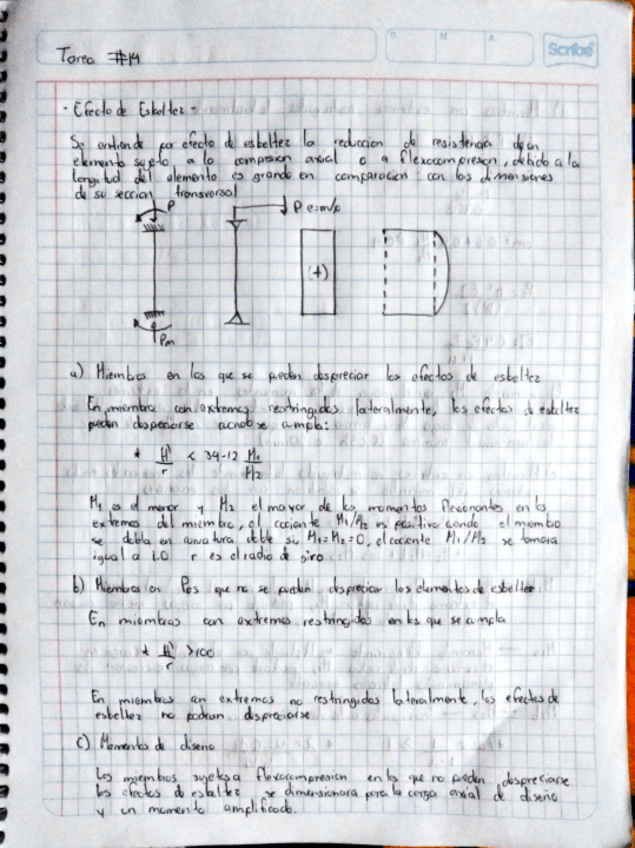 Scribe
D M A
Tarea #14
· Efecto de Esbeltez -
Se entiende por efecto de esbeltez la reduccion de resistencia de un
elemento sujeto a la compresion axial o a flexocompresion, debido a la
longitud del elemento es grande en comparacion con las dimensiones
de su seccion transversal
P
P e=m/p
(+)
Pm
a) Miembros en los que se pueden despreciar los efectos de esbeltez
En miembro con extremos restringidos lateralmente, los efectos de esbeltez
pueden despreciarse cuando se cumpla:
* H'/r < 34-12 M1/M2
M1 es el menor y M2 el mayor de los momentos flexionantes en los
extremos del miembro, el cociente M1/M2 es positivo cuando el miembro
se dobla en curvatura doble si M1=M2=0, el cociente M1/M2 se tomara
igual a 1.0 r es el radio de giro
b) Miembros en los que no se pueden despreciar los elementos de esbeltez
En miembros con extremos restringidos en los que se cumpla
* H'/r >100
En miembros con extremos no restringidos lateralmente, los efectos de
esbeltez no podran despreciarse
c) Momentos de diseño
Los miembros sujetos a flexocompresion en los que no pueden despreciarse
los efectos de esbeltez se dimensionara para la carga axial de diseño
y un momento amplificado.